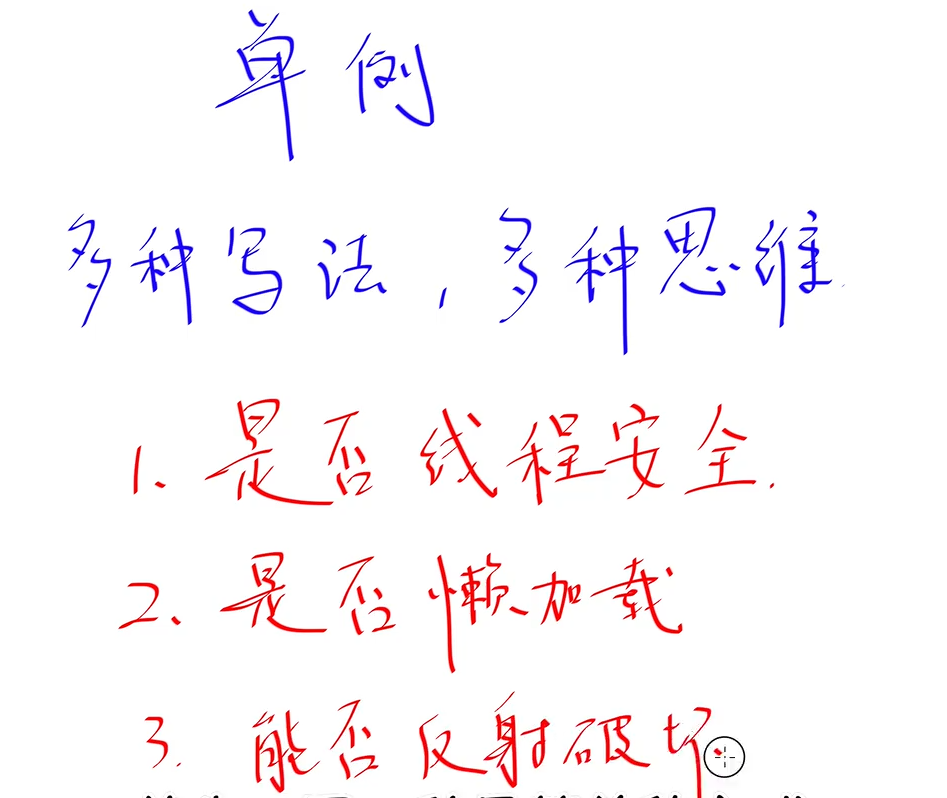 单例
多种写法，多种思维
1. 是否线程安全.
2、是否懒加载
3. 能否反射破坏